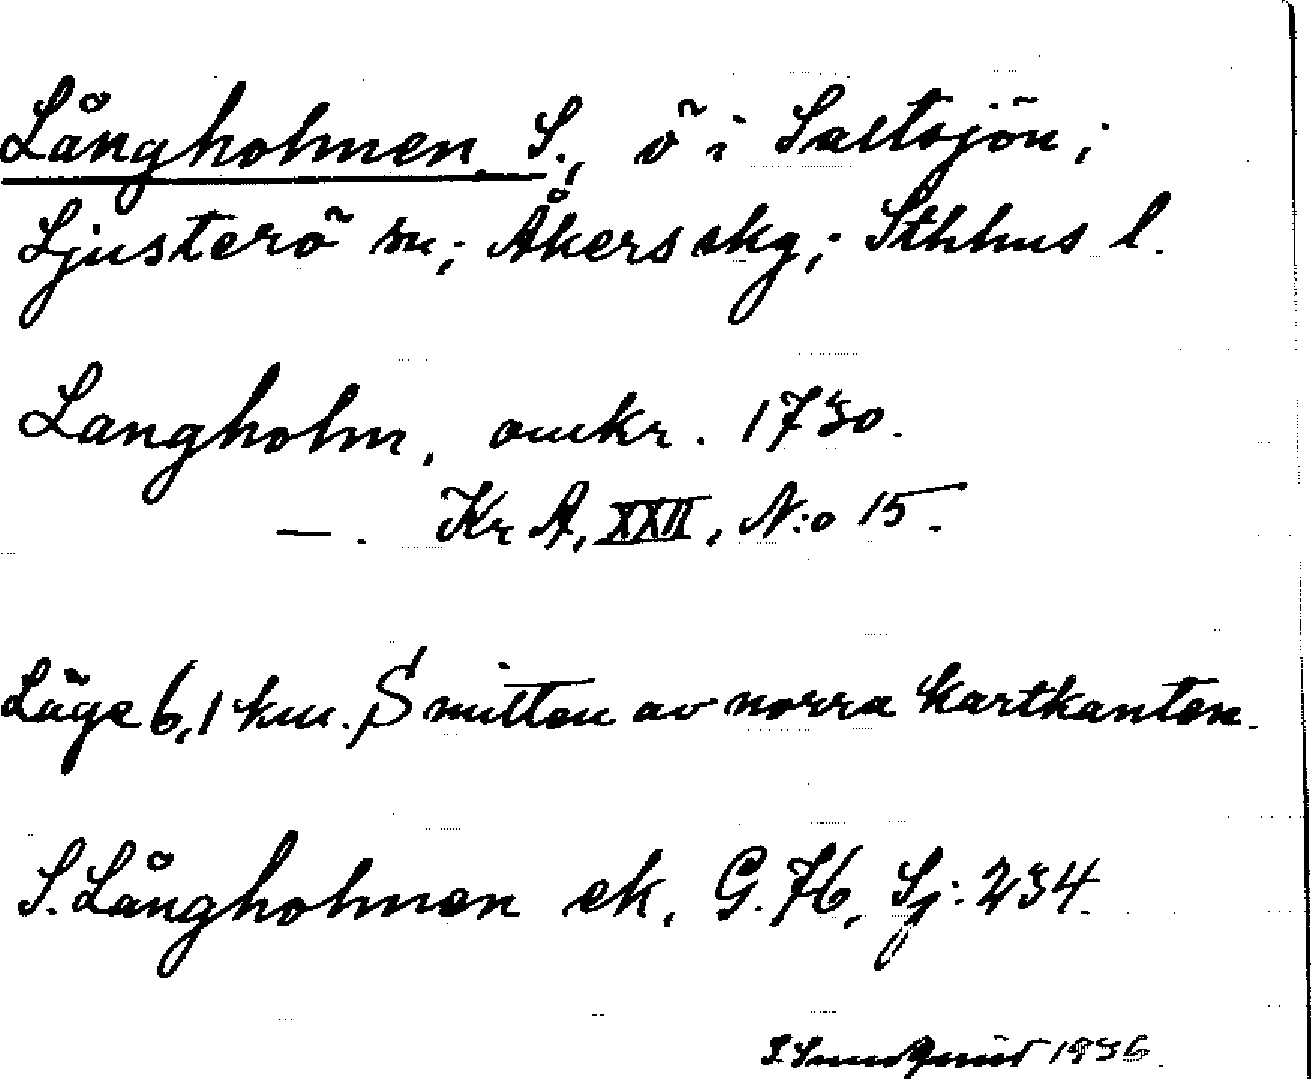 Långholmen, S., ö i Saltsjön;
Ljusterö sn; Åkers skg; Sthlms l.
Langholm, omkr. 1730.
—. Kr A, XXII, N:o 15.
Läge 6,1 km. S mitten av norra kartkanten.
S. Långholmen ek. G. 76, Sj: 234.
S Sundquist 1936.